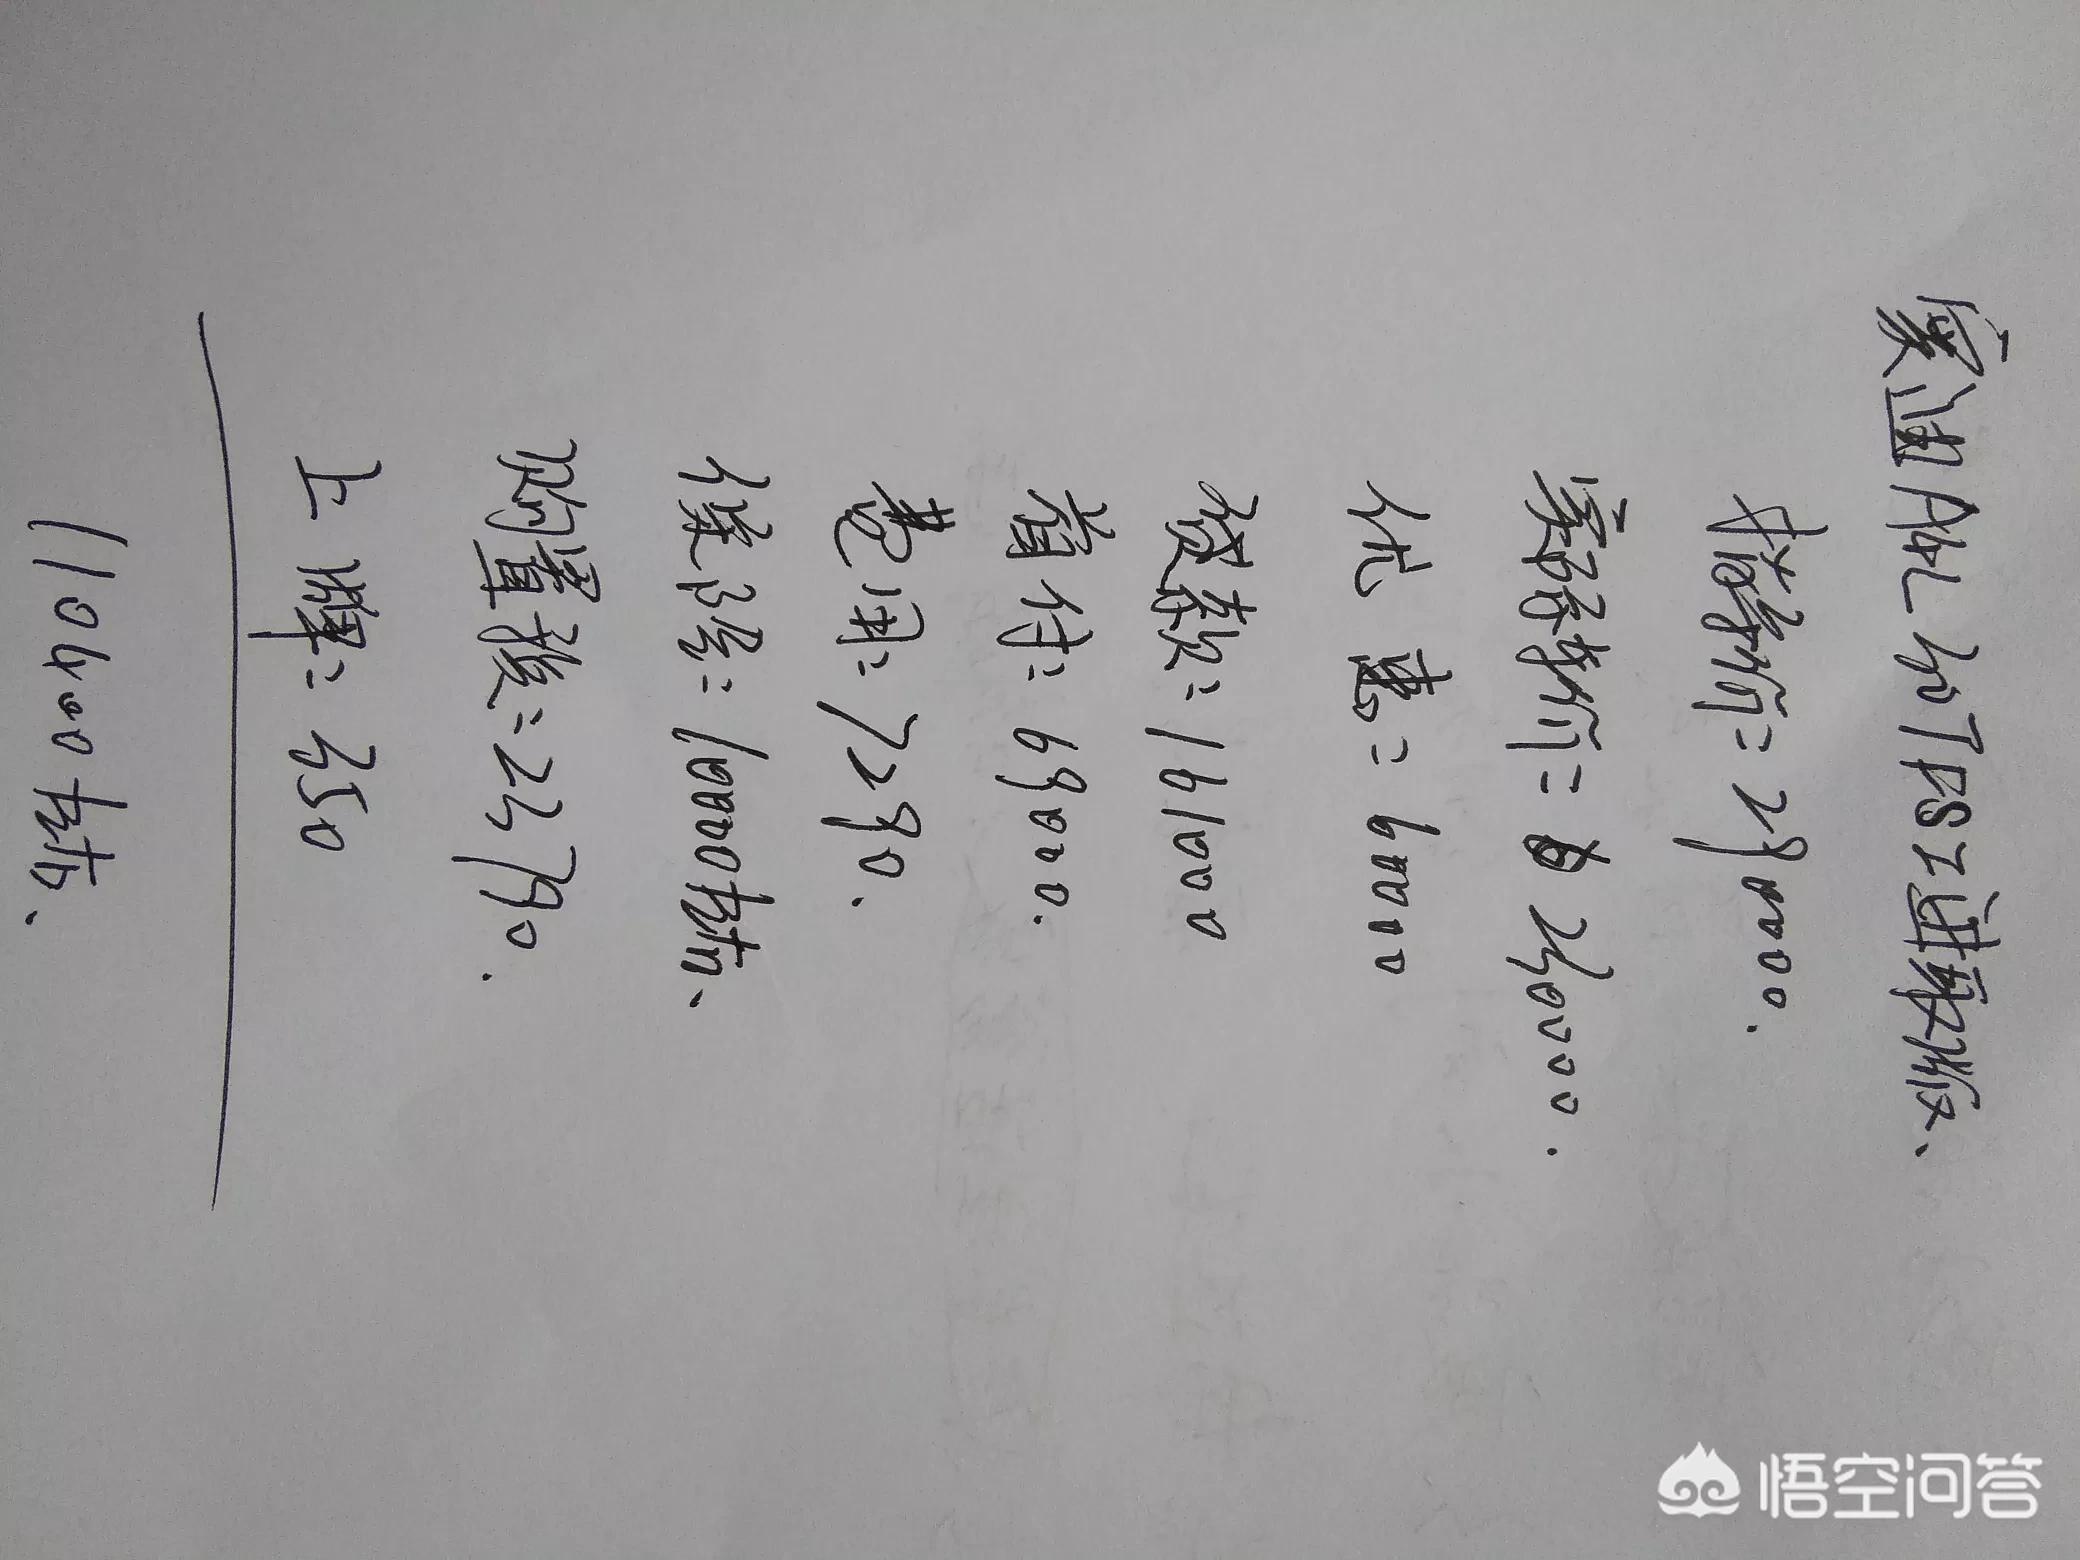 奥迪A4L 40TFSI 进取版、
指导价=290000.
实际价=230000.
优惠=60000
贷款=161000
首付=69000.
费用=7280.
保险=10000左右、
购置税=23790.
上牌=350
110400左右、
悟空问答